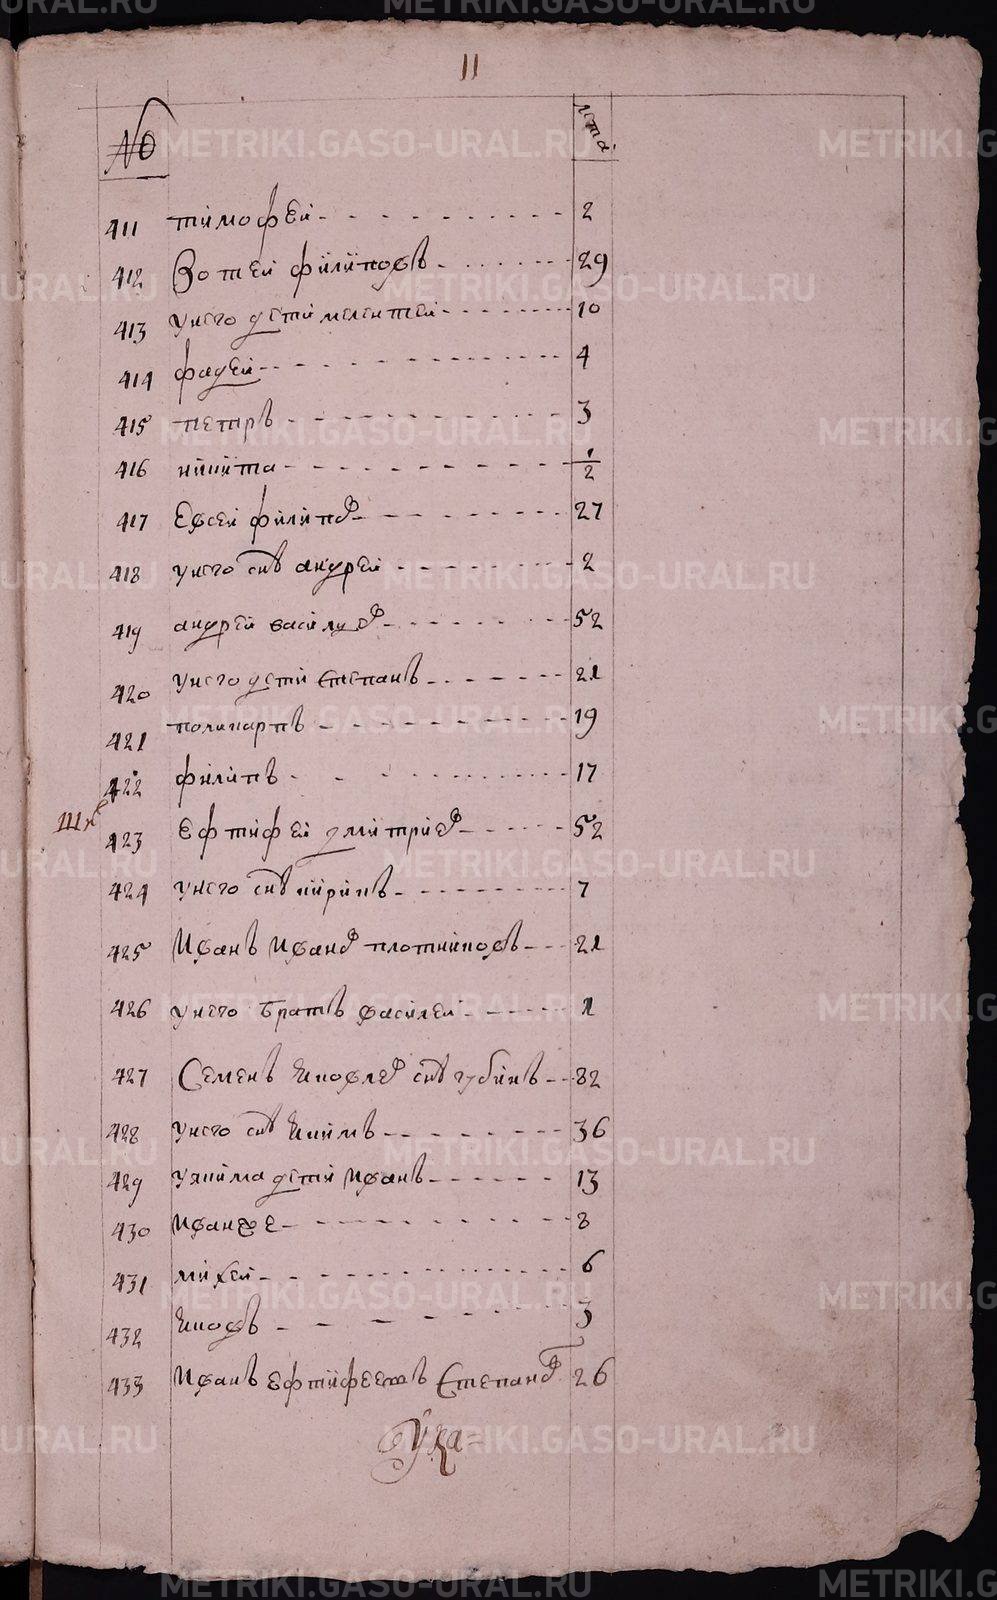 11
№ лѣта
411 тимофеи 2
412 Вотеи филиповъ 29
413 унего дети мелентеи 10
414 фадеи 4
415 петръ 3
416 никита 1/2
417 Евсеи филипов 27
418 унего снъ андреи 2
419 андреи василиев 52
420 унего дети степанъ 21
421 поликарпъ 19
422 филипъ 17
423 ефтифеи дмитриев 52
424 унего снъ кирикъ 7
425 Иванъ Иванов плотниковъ 21
426 унего братъ василеи 1
427 Семенъ яковлев снъ губинъ 82
428 унего снъ якимъ 36
429 уякима дети иванъ 13
430 иван же 8
431 михеи 6
432 яковъ 3
433 Иванъ ефтифеевъ Степанов 26
METRIKI.GASO-URAL.RU